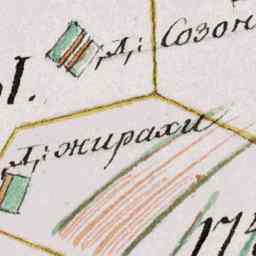 Д: Созон
Д: жирахи
174